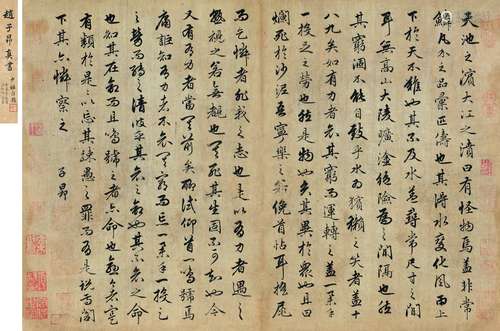 趙子昂真書
天池之濱大江之濆曰有怪物焉蓋非常
鱗凡介之品彙匹儔也其得水變化風雨上
下於天不難也其不及水蓋尋常尺寸之間
耳無高山大陵曠塗絕險為之關隔也然
其窮涸不能自致乎水為獱獺之笑者蓋十
八九矣如有力者哀其窮而運轉之蓋一舉手
一投足之勞也然是物也負其異於衆也且曰
爛死於沙泥吾寧樂之若俛首帖耳搖尾
而乞憐者非我之志也是以有力者遇之
熟視之若無覩也其死其生固不可知也今
又有有力者當其前矣聊試仰首一鳴號焉
庸詎知有力者不哀其窮而忘一舉手一投足
之勞而轉之清波乎其哀之命也其不哀之命
也知其在命而且鳴號之者亦命也愈今者實
有類於是是以忘其疎愚之罪而有是說焉閣
下其亦憐察之
子昂